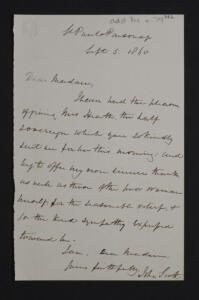 St Paul's Parsonage
Sept 5. 1860
Dear Madam,
I have had the pleasure
of giving Mrs Heath the half
sovereign which you so kindly
sent me for her this morning: and
beg to offer my own sincere thanks
as well as those of the poor woman
herself for the seasonable relief &
for the kind sympathy expressed
toward her.
I am, dear Madam,
Yours faithfully
John Scott